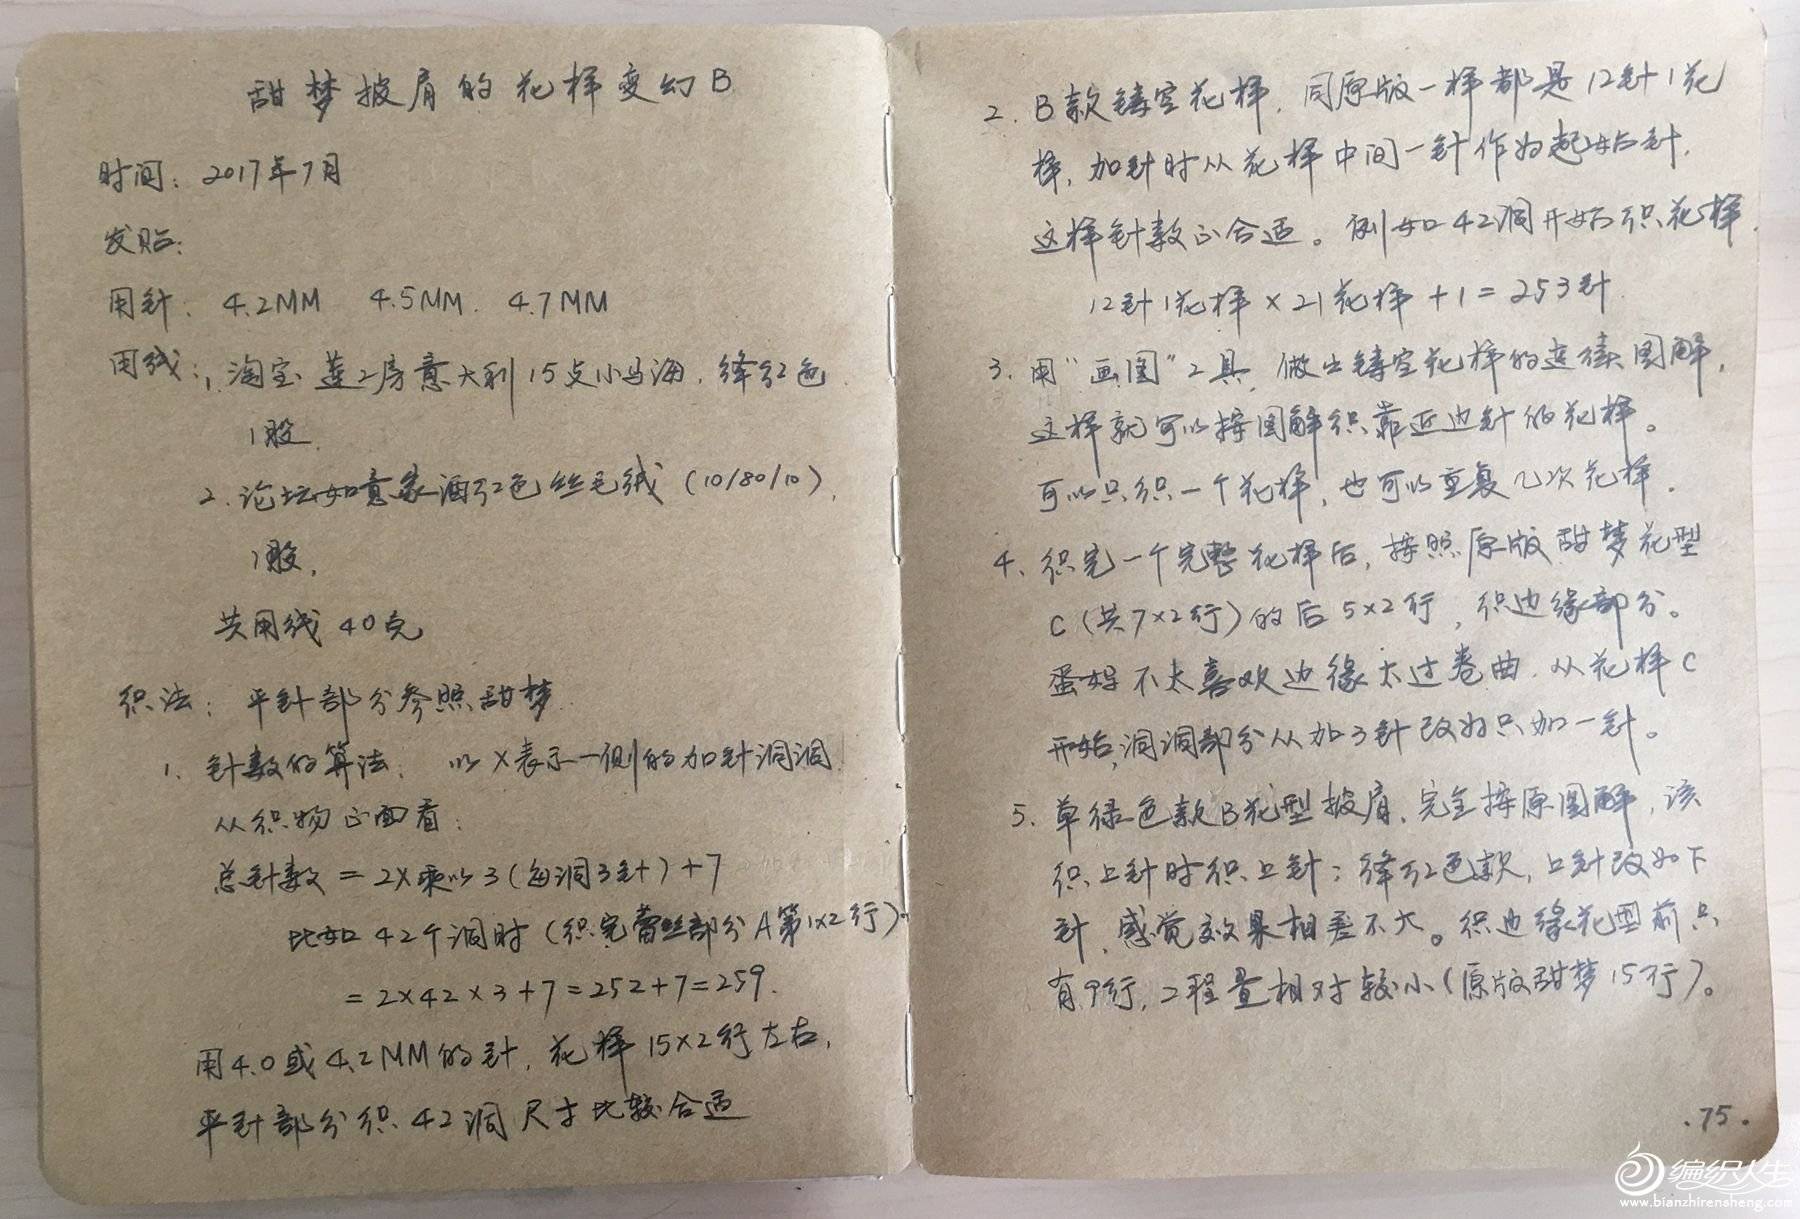 甜梦披肩的花样变幻B
时间: 2017年7月
发贴:
用针: 4.2MM 4.5MM. 4.7MM
用线: 1. 淘宝莲2房意大利15支小马海. 绛红色
1股.
2. 论坛如意家酒红色丝毛绒 (10/80/10),
1股,
共用线40克
织法: 平针部分参照甜梦.
1. 针数的算法: 以X表示一侧的加针洞洞
从织物正面看:
总针数 = 2X乘以3(每洞3针)+7
比如 42个洞时 (织完蕾丝部分A第1x2行)
=2x42x3+7=252+7=259.
用4.0或4.2MM的针, 花样15x2行左右,
平针部分织42洞尺寸比较合适
2. B款镂空花样, 同原版一样都是12针1花
样, 加针时从花样中间一针作为起始针.
这样针数正合适。例如42洞开始织花样.
12针1花样 x 21花样 +1 = 253针
3. 用"画图"工具, 做出镂空花样的连续图解.
这样就可以按图解织靠近边针的花样。
可以只织一个花样, 也可以重复几次花样.
4. 织完一个完整花样后, 按照原版甜梦花型
C(共7x2行)的后5x2行, 织边缘部分。
蛋妈不太喜欢边缘太过卷曲. 从花样C
开始, 洞洞部分从加3针改为只加一针。
5. 草绿色款B花型披肩, 完全按原图解, 该
织上针时织上针; 绛红色款, 上针改如下
针, 感觉效果相差不大。织边缘花型前只
有9行, 工程量相对较小(原版甜梦15行)。
.75.
编织人生
www.bianzhirensheng.com